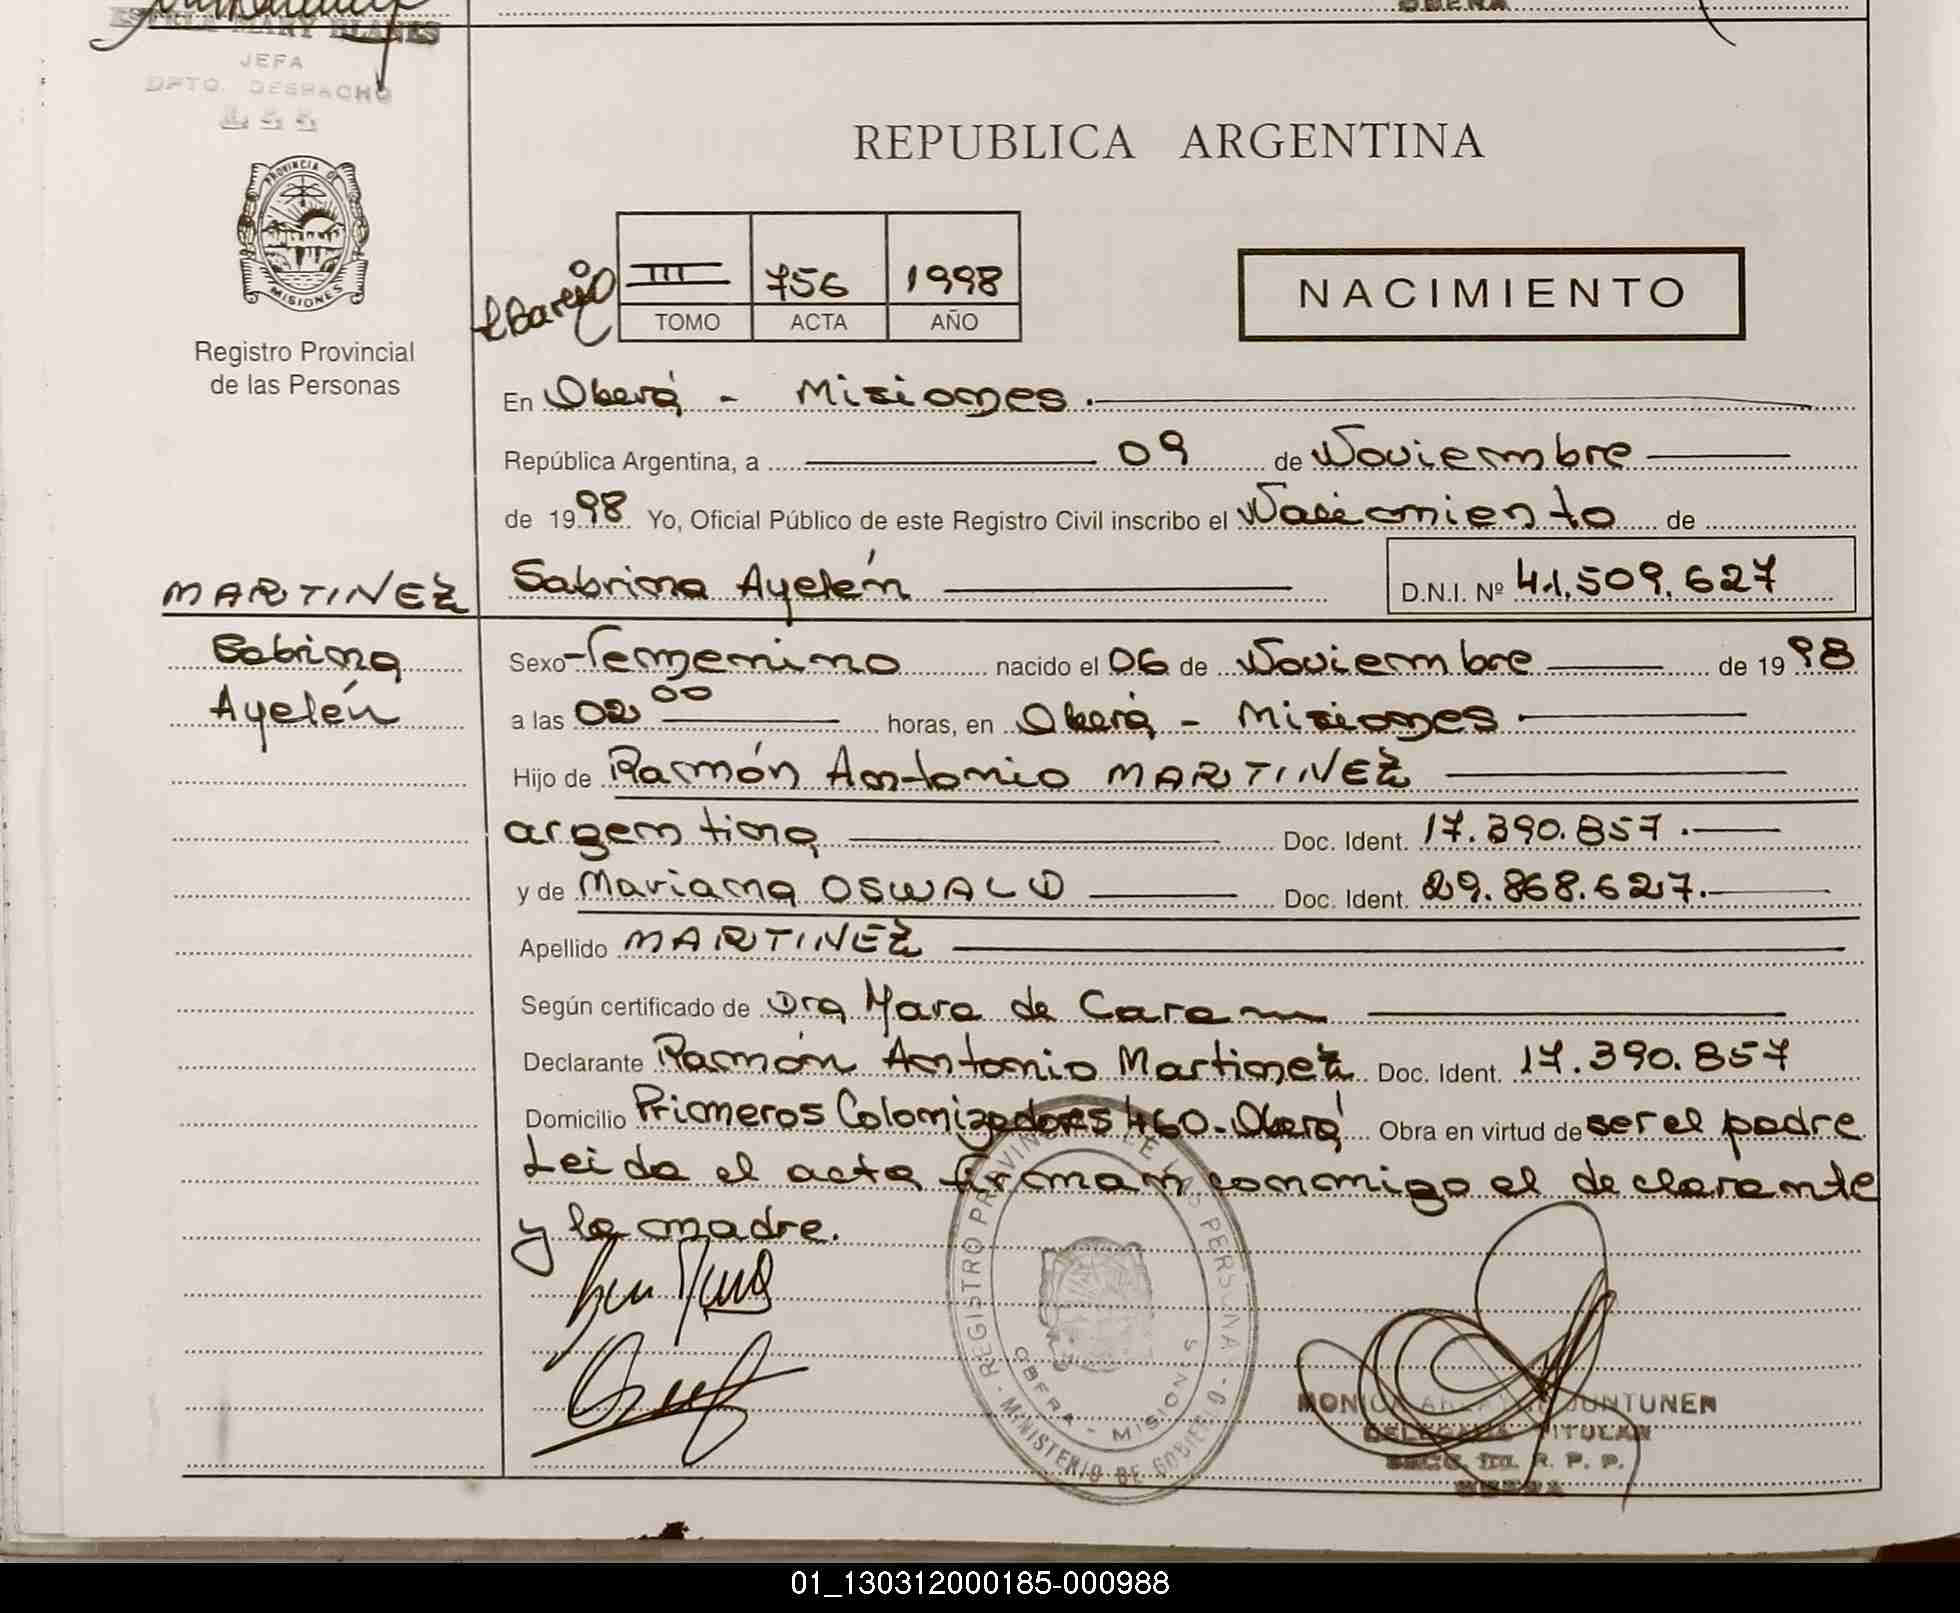 JEFA
DPTO. DESPACHO
PROVINCIA DE
MISIONES
Registro Provincial
de las Personas
REPUBLICA ARGENTINA
III 756 1998
TOMO ACTA AÑO
NACIMIENTO
En Oberá - Misiones.
República Argentina, a 09 de Noviembre
de 1998 Yo, Oficial Público de este Registro Civil inscribo el Nacimiento de
MARTINEZ Sabrina Ayelén D.N.I. Nº 41.509.627
Sabrina Sexo Femenino nacido el 06 de Noviembre de 1998
Ayelén a las 02 00 horas, en Oberá - Misiones
Hijo de Ramón Antonio MARTINEZ
argentina Doc. Ident. 17.390.857.
y de Mariana OSWALD Doc. Ident. 29.868.627.
Apellido MARTINEZ
Según certificado de Dra Mara de Caram
Declarante Ramón Antonio Martinez Doc. Ident. 17.390.857
Domicilio Primeros Colonizadores 460-Oberá Obra en virtud de ser el padre
Leida el acta firman conmigo el declarante
y la madre.
REGISTRO PROVINCIAL DE LAS PERSONAS - MINISTERIO DE GOBIERNO
OBERA - MISIONES
JUNTUNEN
DELEGADA TITULAR
SECC. III. R. P. P.
OBERA
01_130312000185-000988